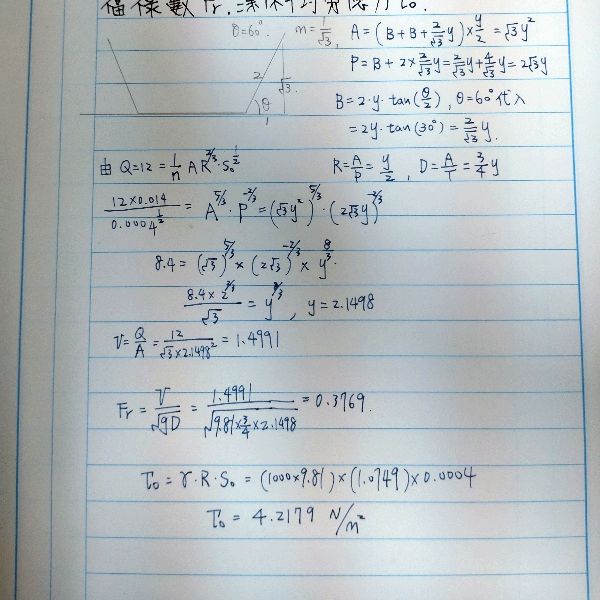 福祿數 Fr
θ=60° m=1/√3, A=(B+B+2/√3 y)×y/2=√3y²
P=B+2×2/√3 y=2/√3 y+4/√3 y=2√3y
2 √3 θ 1
B=2·y·tan(θ/2), θ=60°代入
=2y·tan(30°)=2/√3 y.
由 Q=12=1/n AR^2/3·S₀^1/2 R=A/P=y/2, D=A/T=3/4 y
12×0.014/0.0004^1/2=A^5/3·P^-2/3=(√3y²)^5/3·(2√3y)^-2/3
8.4=(√3)^5/3×(2√3)^-2/3×y^8/3.
8.4×2^2/3/√3=y^8/3, y=2.1498
V=Q/A=12/√3×2.1498²=1.4991
Fr=V/√gD=1.4991/√9.81×3/4×2.1498=0.3769.
τ₀=γ·R·S₀=(1000×9.81)×(1.0749)×0.0004
τ₀=4.2179 N/m²